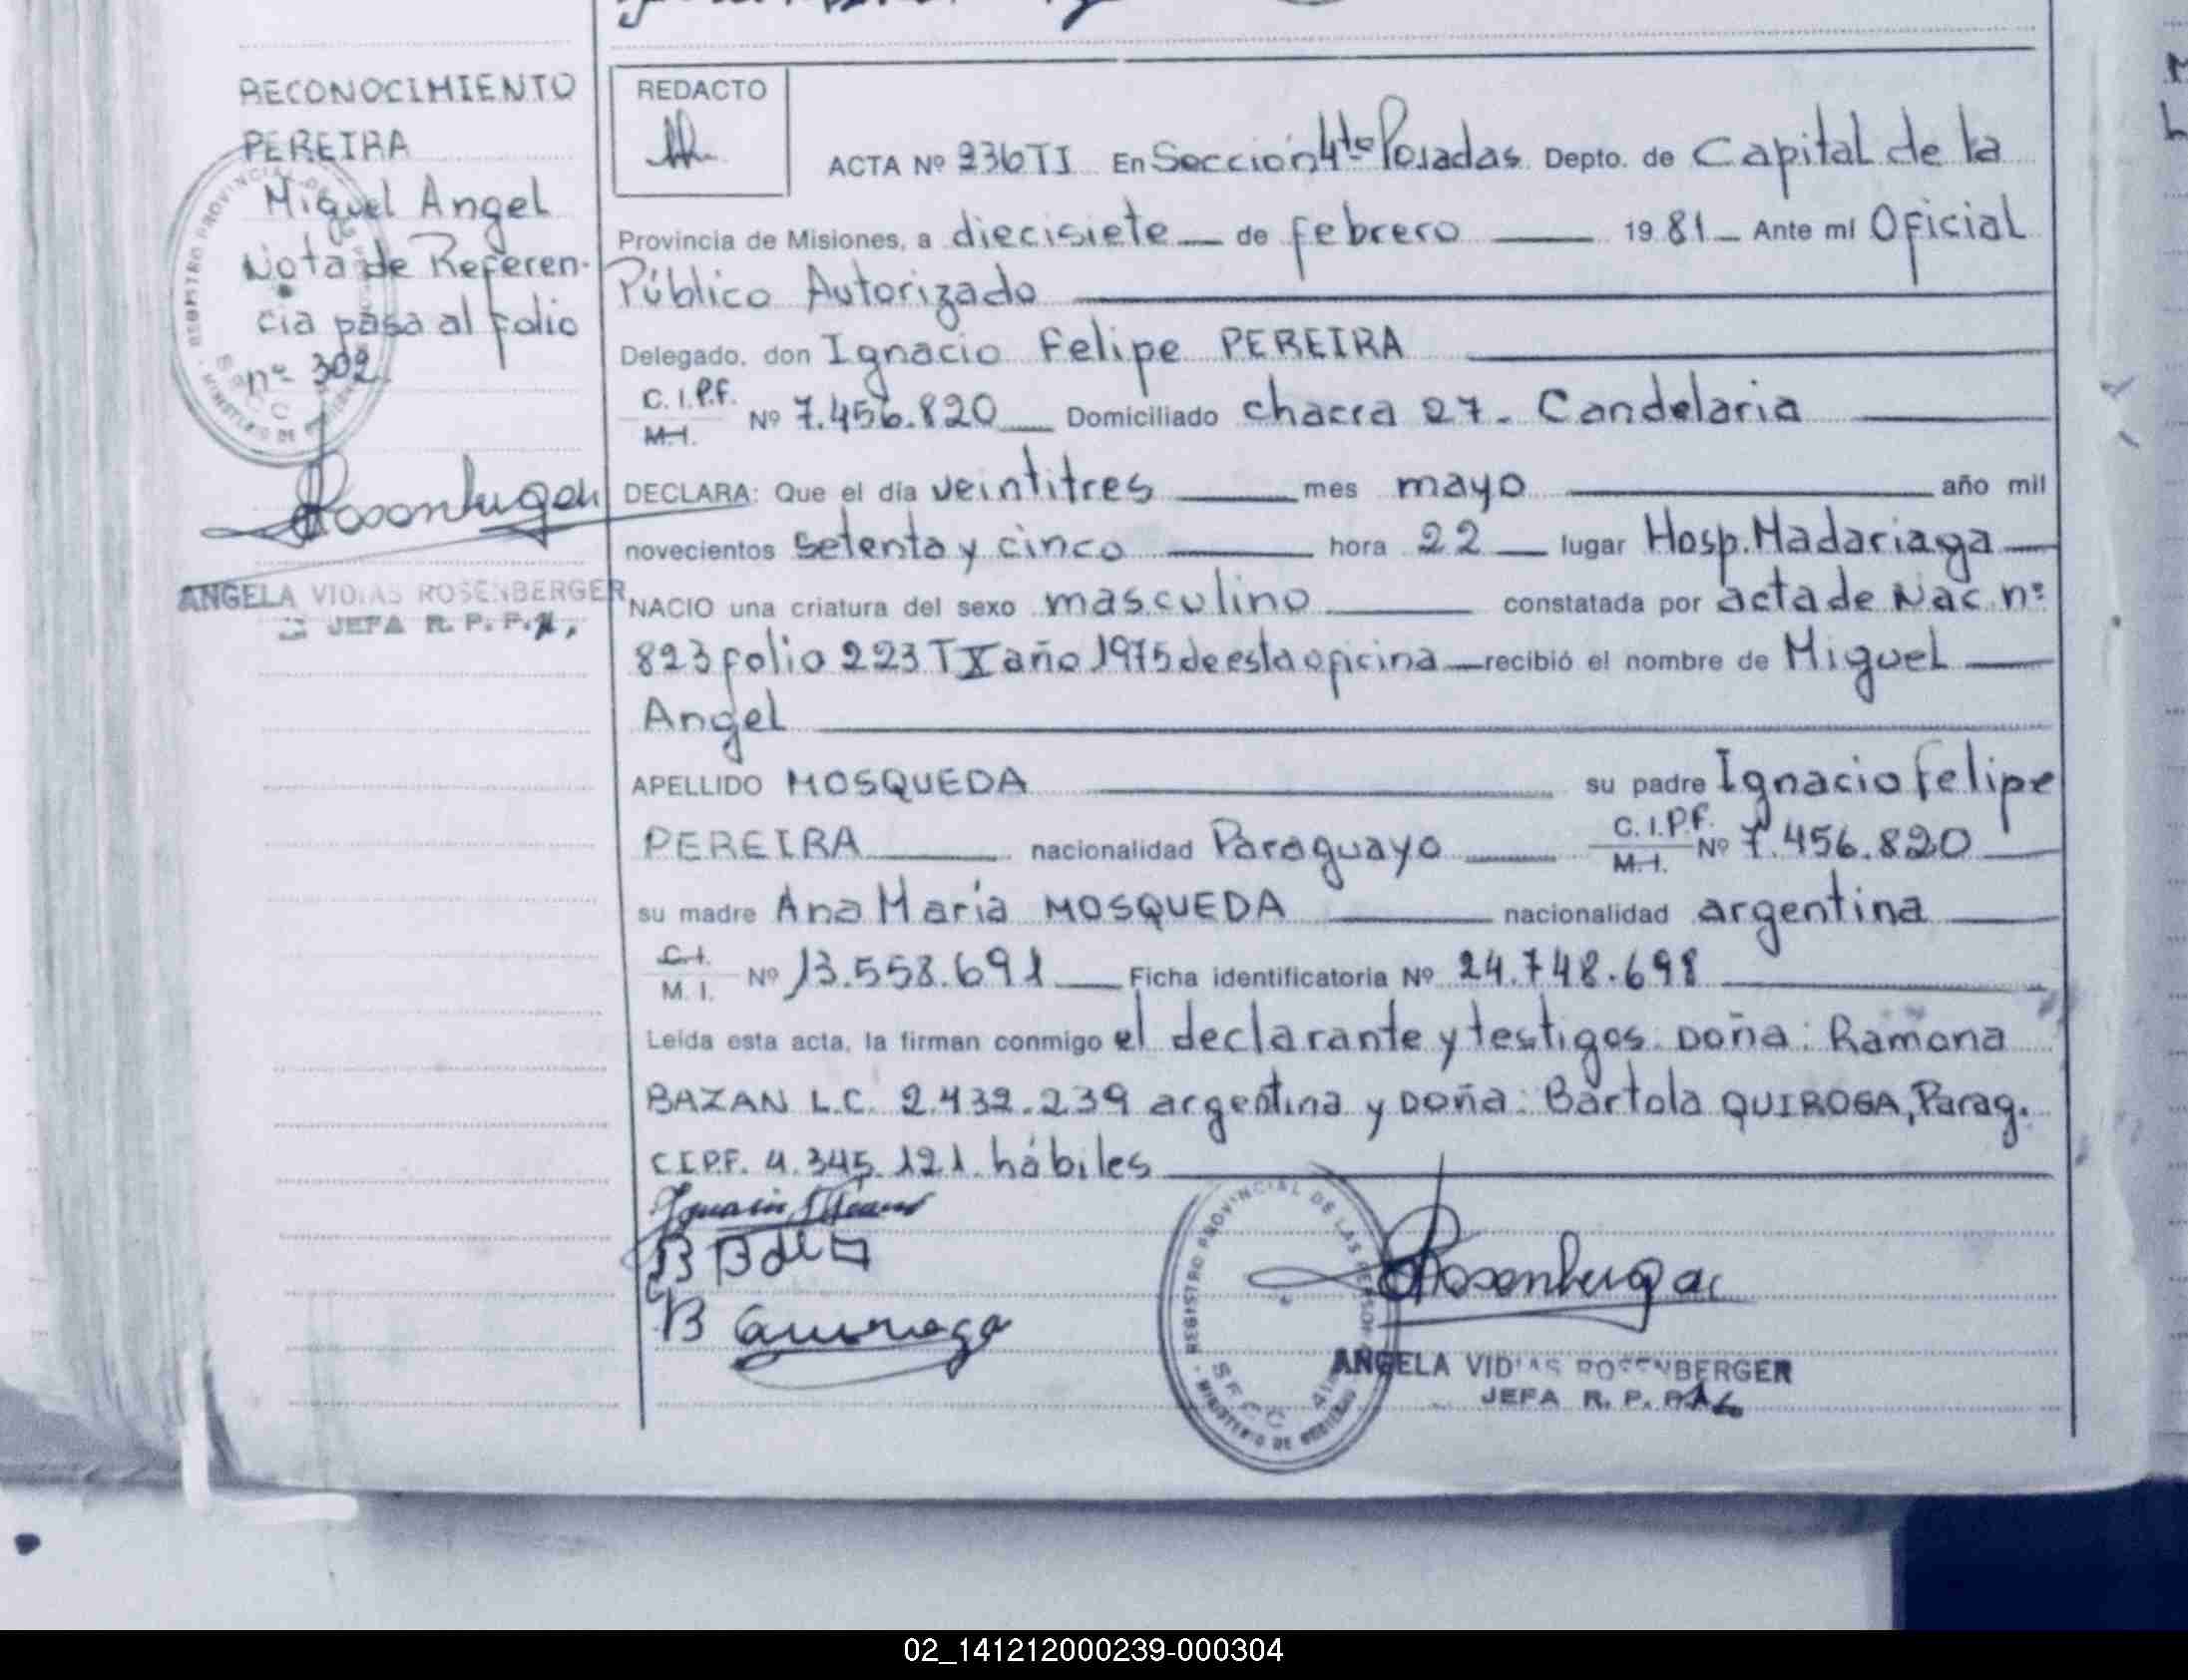 RECONOCIMIENTO
PEREIRA
Miguel Angel
Nota de Referen-
cia pasa al folio
nº 302
Rosenberger
ANGELA VIDIAS ROSENBERGER
JEFA R. P. P.
REDACTO
ACTA Nº 236 TI En Sección 4ta Posadas Depto. de Capital de la
Provincia de Misiones, a diecisiete de febrero 1981 Ante mí Oficial
Público Autorizado
Delegado, don Ignacio Felipe PEREIRA
C.I.P.F.
M.I. Nº 7.456.820 Domiciliado chacra 27 - Candelaria
DECLARA: Que el día veintitres mes mayo año mil
novecientos setenta y cinco hora 22 lugar Hosp. Madariaga
NACIO una criatura del sexo masculino constatada por acta de Nac. nº
823 folio 223 T X año 1975 de esta oficina recibió el nombre de Miguel
Angel
APELLIDO MOSQUEDA su padre Ignacio Felipe
PEREIRA nacionalidad Paraguayo C.I.P.F. M.I. Nº 7.456.820
su madre Ana María MOSQUEDA nacionalidad argentina
C.I.
M. I. Nº 13.558.691 Ficha identificatoria Nº 24.748.698
Leída esta acta, la firman conmigo el declarante y testigos Doña: Ramona
BAZAN L.C. 2.432.239 argentina y Doña: Bartola QUIROGA, Parag.
C.I.P.F. 4.345.121 hábiles
REGISTRO PROVINCIAL DE LAS PERSONAS
SECC 4
MINISTERIO DE GOBIERNO
B Quiroga
Rosenberger
ANGELA VIDIAS ROSENBERGER
JEFA R. P. P.
02_141212000239-000304